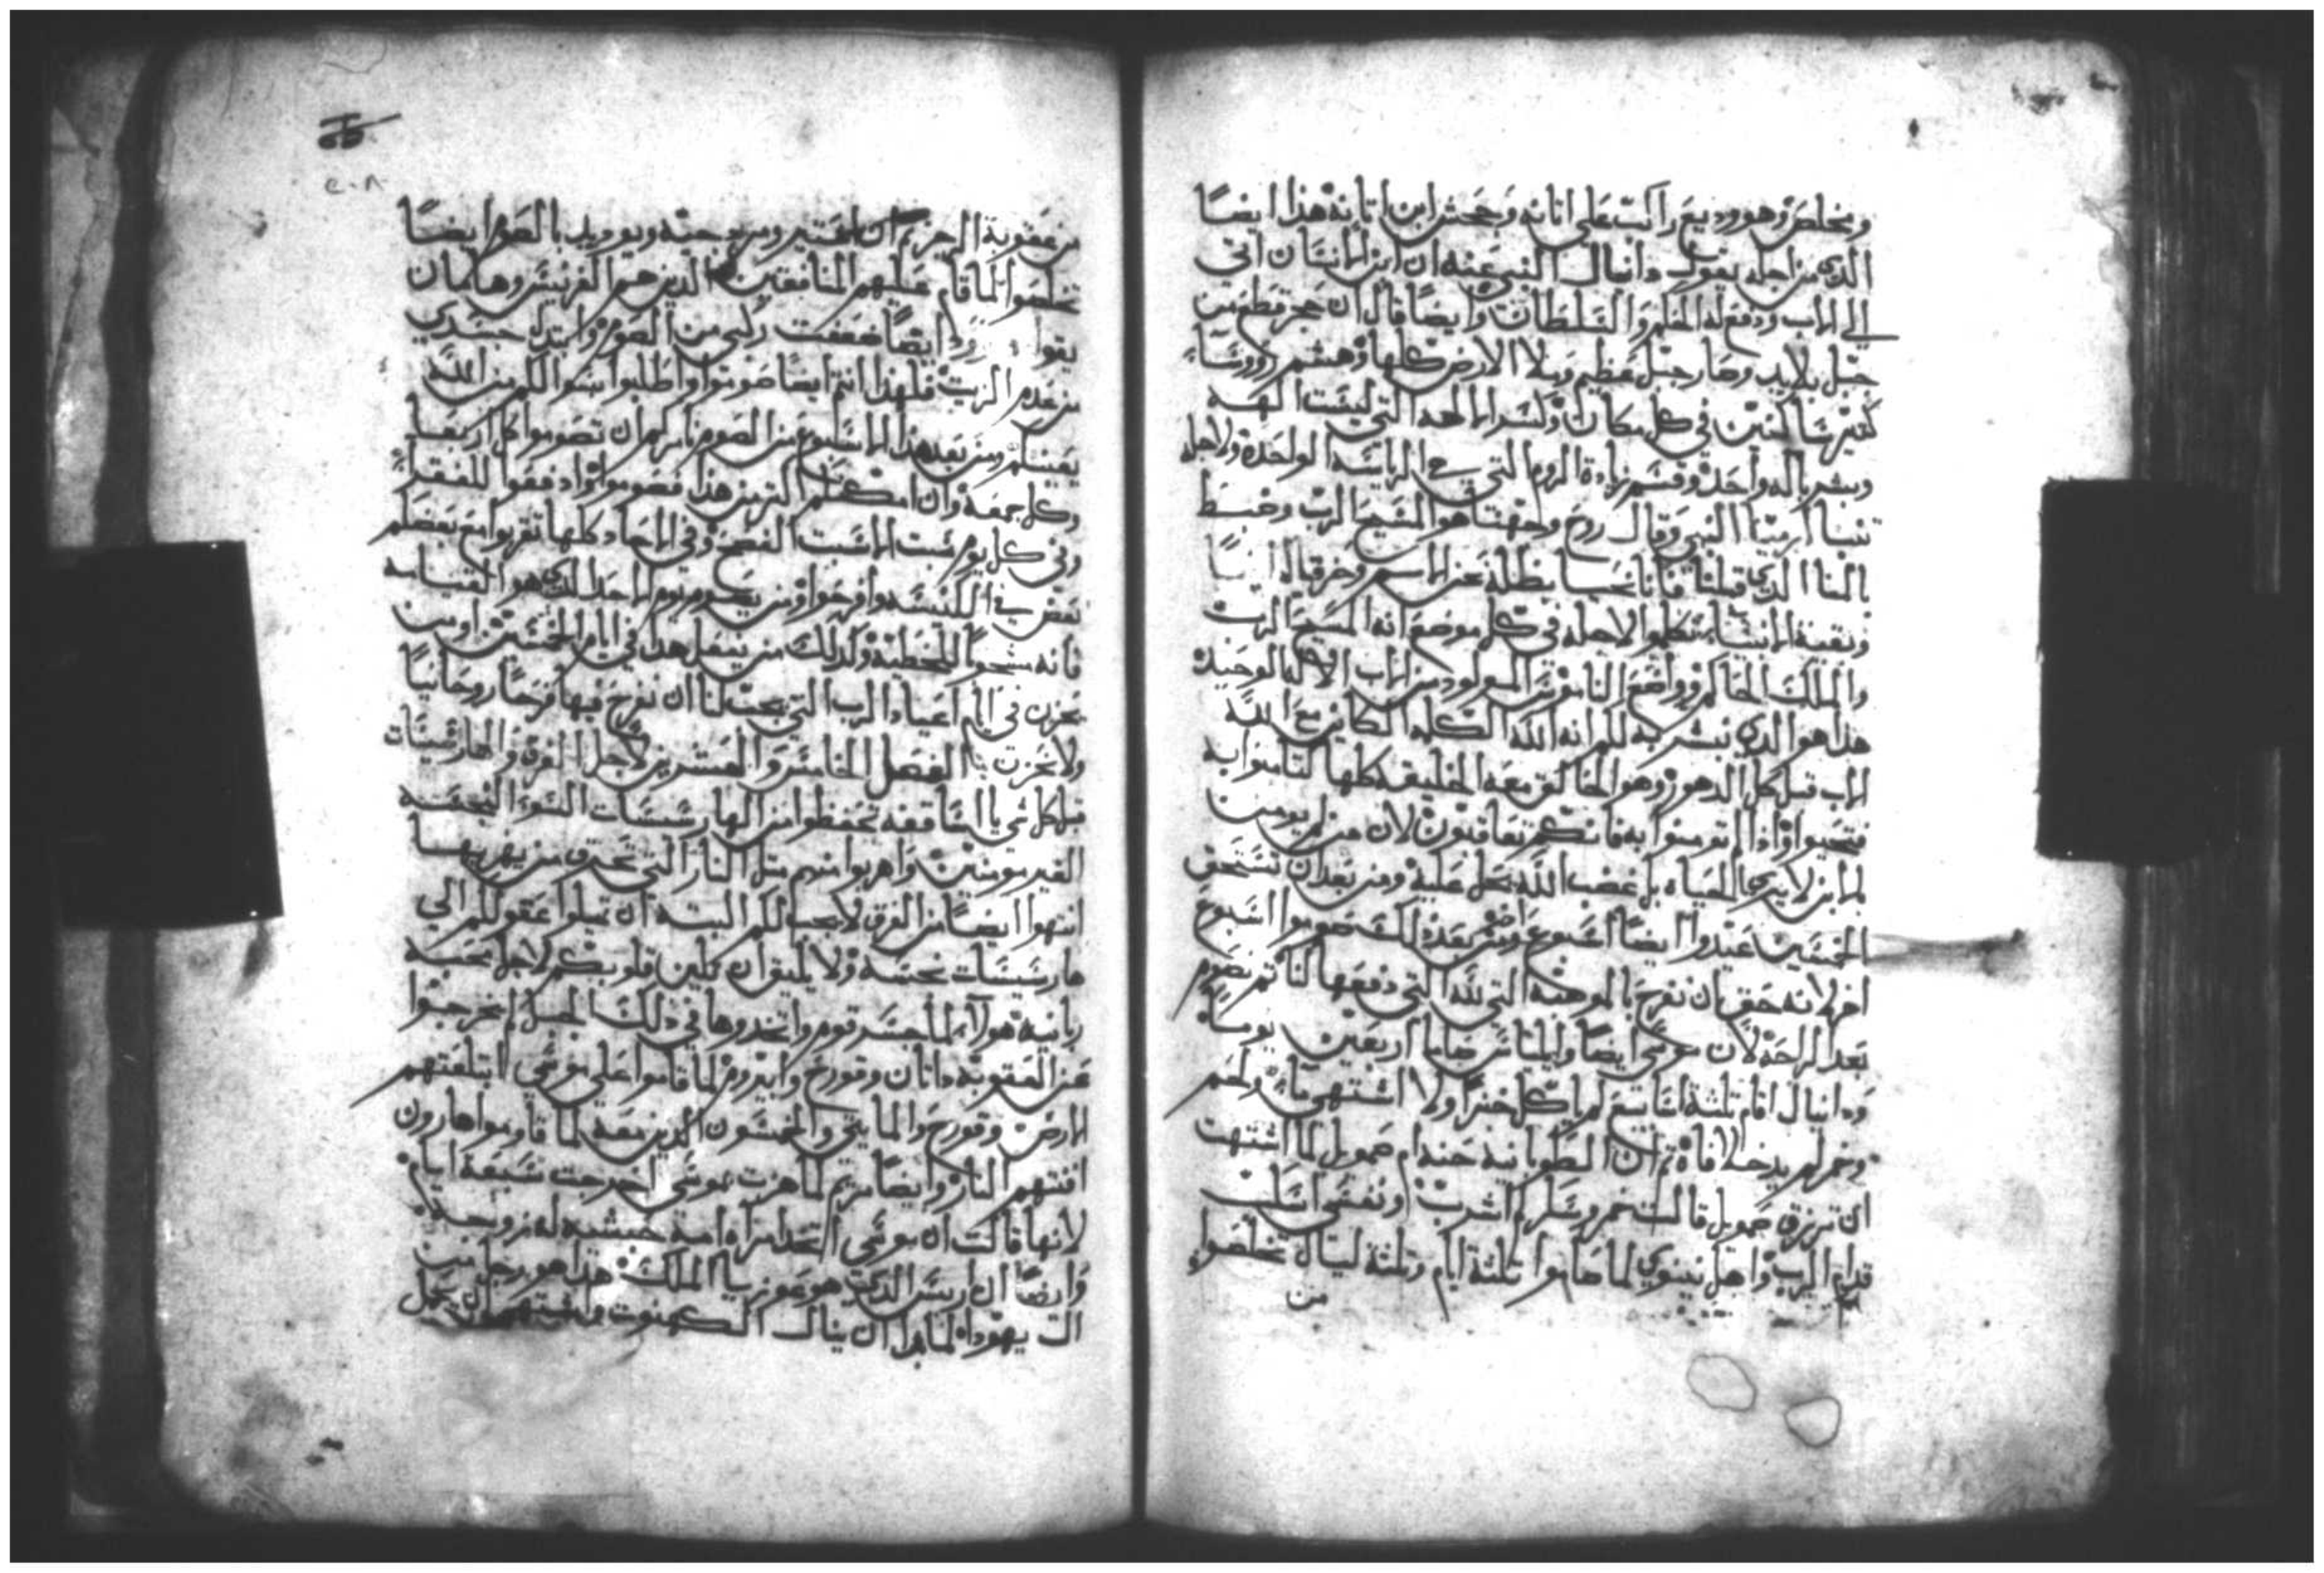 ومخلص وهو وديع راكب على اتانه وجحش ابن اتانه هذا ايضًا
الدي من اجله يقول دانيال النبي عنه ان ابن الانسان اتي
الي الاب ودفع له الحكم والسلطان وايضًا قال ان حجر قطع من
جبل بلا يد وصار جبل عظيم وملا الارض كلها وهشم رووسًا
كتير ساكنين في كل مكان وكسر الالهه التي ليست الهه
وبشر باله واحد وقسم الروم التي الرياسه الواحده ولاجله
تنبا ارميا النبي وقال روح وجهنا هو المسيح الرب
الدي قلنا اننا نحيا بظله
وبقية الانبيا تكلموا لاجله في كل موضع انه المسيح الرب
والملك الحاكم وواضع الناموس المولود من الاب الاله الوحيد
هذا هو الدي نبشر به لكم انه الله الكلمه الكاين مع الله
الاب قبل كل الدهور وهو الخالق معه الخليقه كلها لتامنوا به
فتحيوا واذا لم تومنوا به فانكم تعاقبون لان من لم يومن
بالابن لا يري الحياه بل غضب الله يحل عليه ومن بعد ان
الخمسين عيدوا ايضًا اسبوع اخر ومن بعد ذلك صوموا اسبوع
اخر لانه حق ان نفرح بالموهبه التي لله التي دفعها لنا تم نصوم
بعد الراحه لان موسي ايضًا وايلياس صاما اربعين يومًا
ودانيال اقام تلتة اسابيع لم ياكل خبزًا ولا اشتهي ولحم
وخمر لم يدخلا فاه تم ان الطوبانيه حنه ام صمويل لما اشتهت
ان ترزق صمويل قالت خمر وسكر لم اشرب ونفسي اسكب
قدام الرب واهل نينوي لما صاموا تلتة ايام وتلتة ليال تخلصوا
من
٢٠٨
من عقوبة الرجز ومردوخيه ويوديد بالصوم ايضًا
تخلصوا لما قام عليهم المنافقين الذين هم وهامان
يقول داود ايضًا ضعفت ركبي من الصوم وابتدل جسدي
من عدم الزيت فلهذا انتم ايضًا صوموا واطلبوا سوالكم من الله
ومن بعد هذا الاسبوع من الصوم نامركم ان تصوموا كل اربعا
وكل جمعه وان امكنكم اكتر من هذا فصوموا وادفعوا للفقرا
وفي كل يوم سبت الا سبت الفصح وفي الاحاد كلها تقربوا مع بعضكم
بعض في الكنيسه وافرحوا ومن يصوم يوم الاحد الدي هو القيامه
فانه مستحق الخطيه وكدلك من يفعل هذا في ايام الخمسين او من
يحزن في ايام اعياد الرب التي يجب لنا ان نفرح فيها فرحًا روحانيًا
ولا نحزن الفصل الخامس والعشرين لاجل الفرق والهارسيات
قبل كل شي يا اساقفه تحفظوا من الهارسيسات السو النجسه
الغير مومنين واهربوا منهم متل النار التي تحرق من يقربها
انتهوا ايضًا من الفرق لا يجب لكم البته ان تميلوا عقولكم الي
هارسيسات نجسه ولا يليق ان تكلين قلوبكم لاجل محبه
هولاي لما جسر قوم واتخدوها في ذلك الجبل لم يخرجوا
عن العقوبه داتان وقورح وابيروم لما قاموا علي موسي ابتلعتهم
الارض وقورح والمايتي والخمسون الدين معه لما قاوموا هارون
افنتهم النار وايضًا مريم لما هزت بموسي اخرجت سبعة ايام
لانها قالت ان موسي اتخد امراه امة حبشيه له زوجه
وايضًا الدي هو عوزيا الملك هذا هو رجل من
ال يهودا لما اراد ان ينال الكهنوت